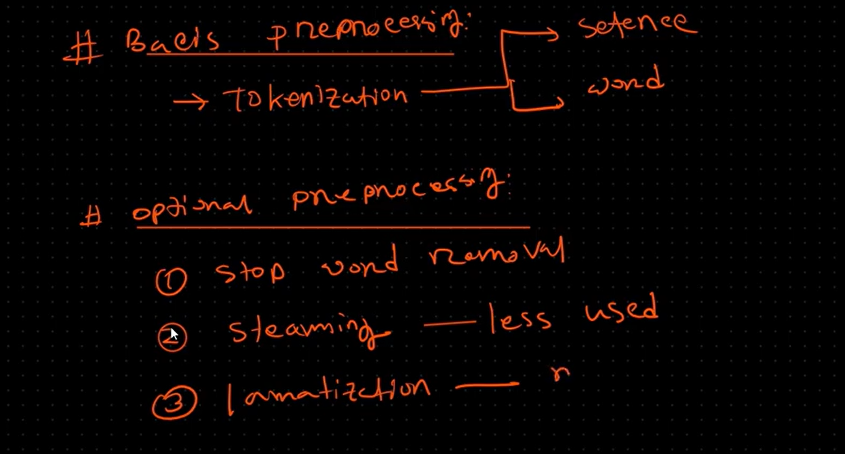 # Bacis preprocessing:
→ Tokenization
setence
word
# optional preprocessing:
① stop word removal
② steaming — less used
③ lamatization —